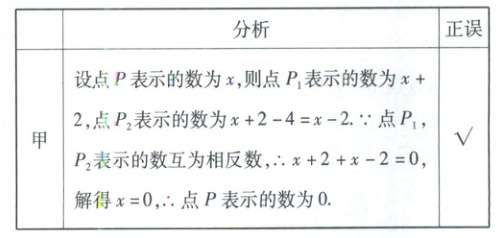 分析 正误
设点 P 表示的数为 x,则点 P₁表示的数为 x +
2,点 P₂表示的数为 x + 2 - 4 = x - 2. ∵ 点 P₁,
甲 P₂表示的数互为相反数,∴ x + 2 + x - 2 = 0, √
解得 x = 0,∴ 点 P 表示的数为 0.